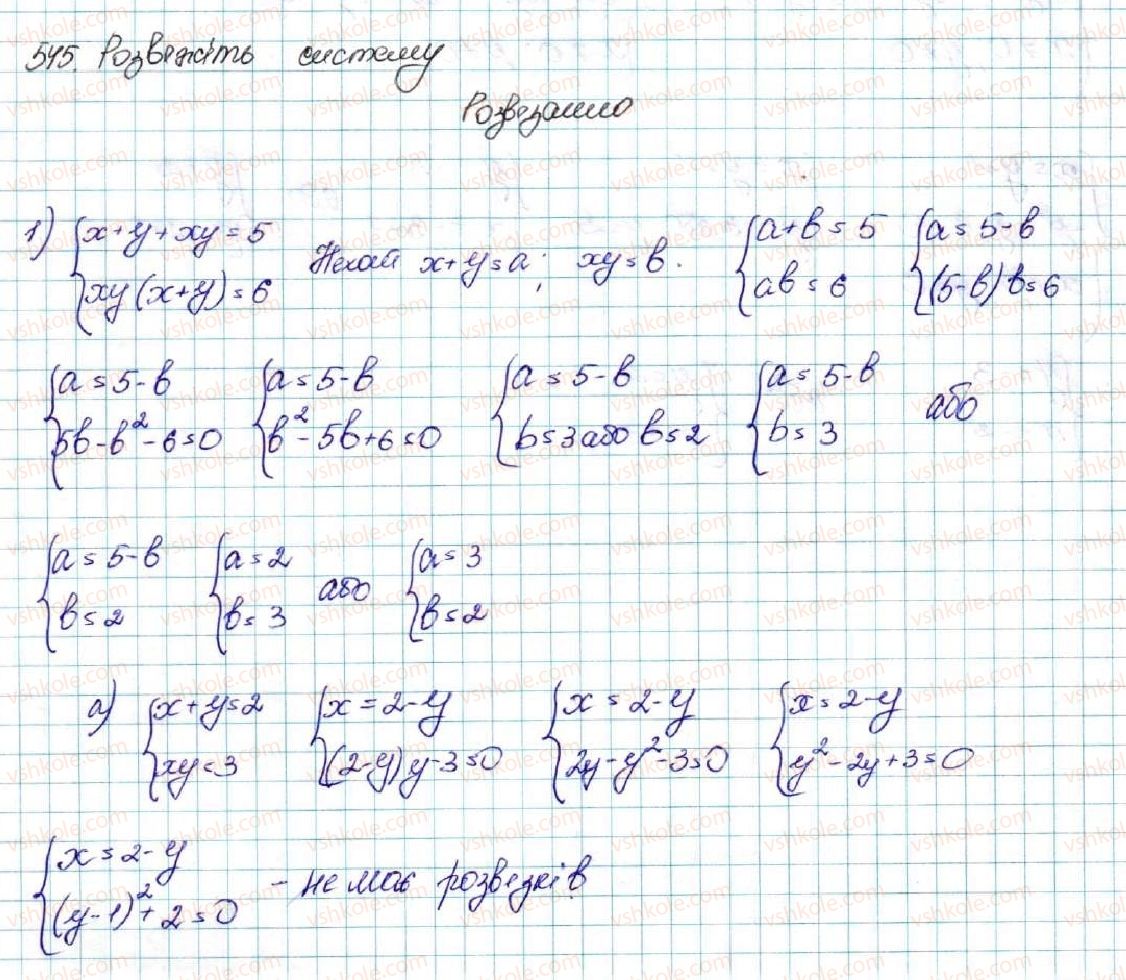 545. Розв'яжіть систему
Розв'язання
1) {x+y+xy=5 {xy(x+y)=6 Нехай x+y=a; xy=b. {a+b=5 {ab=6 {a=5-b {(5-b)b=6
{a=5-b {5b-b²-6=0 {a=5-b {b²-5b+6=0 {a=5-b {b=3 або b=2 {a=5-b {b=3 або
{a=5-b {b=2 {a=2 {b=3 або {a=3 {b=2
а) {x+y=2 {xy=3 {x=2-y {(2-y)y-3=0 {x=2-y {2y-y²-3=0 {x=2-y {y²-2y+3=0
{x=2-y {(y-1)²+2=0 - не має розв'язків.